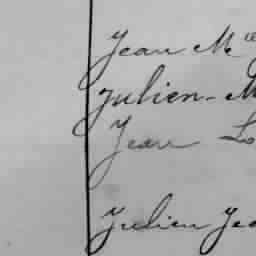 Jean M
Julien - M
Jean Lo
Julien Jea